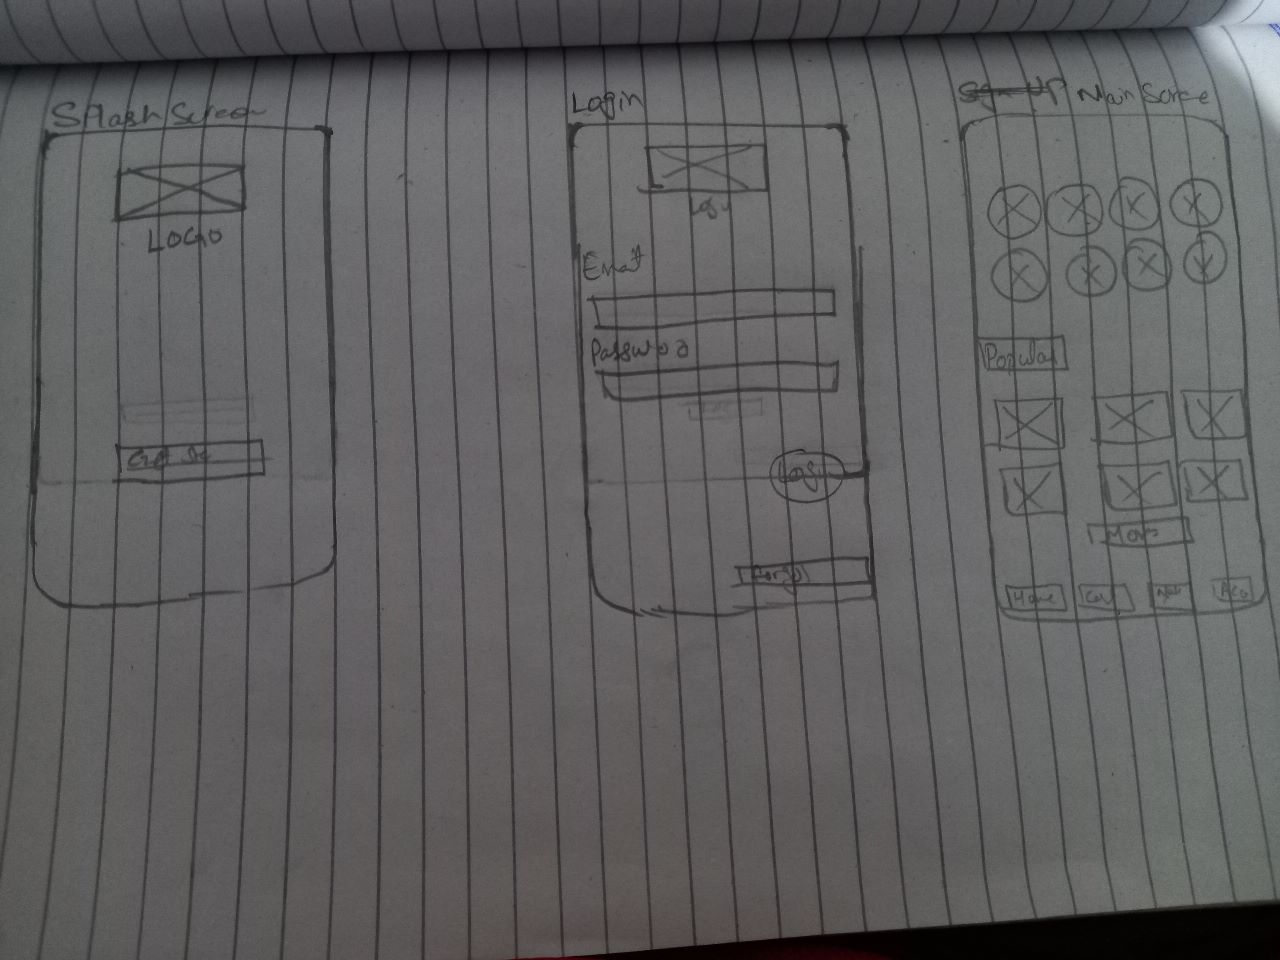 Splash Screen
LOGO
Login
Logo
Email
Password
Login
Sign UP Main Scree
Popular
More
Home
Cart
Acc